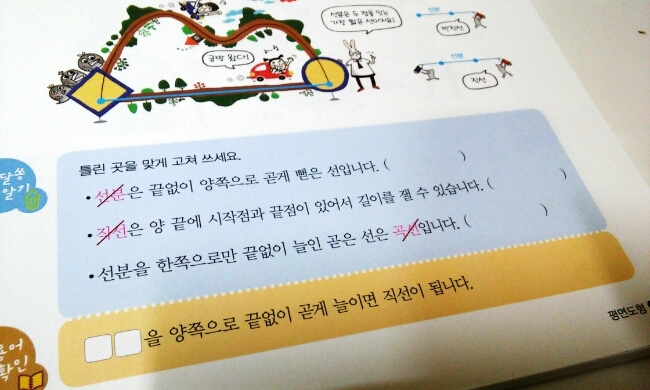 선분은 두 점을 잇는
가장 짧은 선이지요!
금방 왔다!
선분
반직선
선분
직선
달쏭
알기
틀린 곳을 맞게 고쳐 쓰세요.
• 선분은 끝없이 양쪽으로 곧게 뻗은 선입니다. ( )
• 직선은 양 끝에 시작점과 끝점이 있어서 길이를 잴 수 있습니다. ( )
• 선분을 한쪽으로만 끝없이 늘인 곧은 선은 곡선입니다. ( )
용어
확인
을 양쪽으로 끝없이 곧게 늘이면 직선이 됩니다.
평면도형